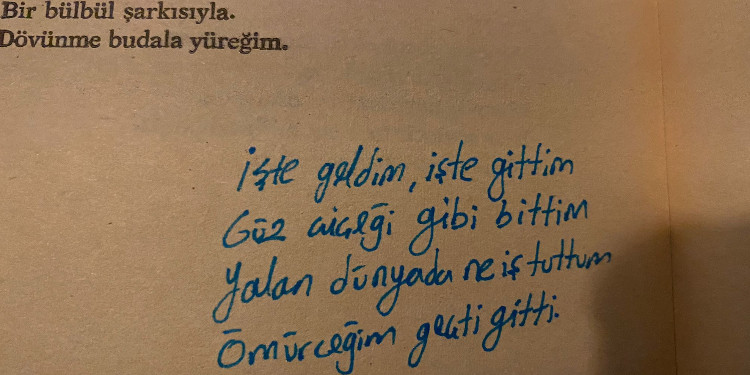 Bir bülbül şarkısıyla.
Dövünme budala yüreğim.
İşte geldim, işte gittim
Güz çiçeği gibi bittim
Yalan dünyada ne iş tuttum
Ömürceğim geçti gitti.